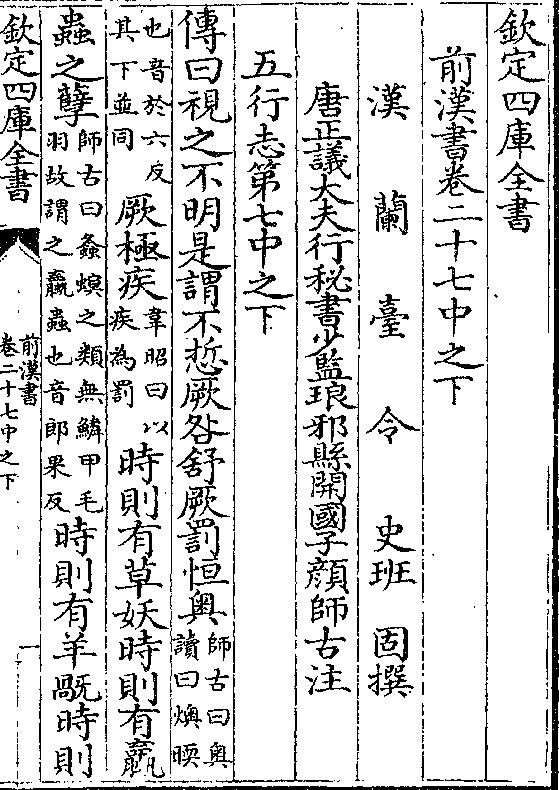 欽定四庫全書
前漢書卷二十七中之下
漢蘭臺令史班固撰
唐正議大夫行秘書少監琅邪縣開國子顏師古注
五行志第七中之下
傳曰視之不明是謂不悊厥咎舒厥罰恒奧師古曰奧讀曰燠暖
也音於六反其下並同厥極疾韋昭曰以疾為罰時則有草妖時則有蠃
蟲之孽師古曰螽螟之類無鱗甲毛羽故謂之蠃蟲也音郎果反時則有羊旤時則
欽定四庫全書
前漢書
卷二十七中之下
一